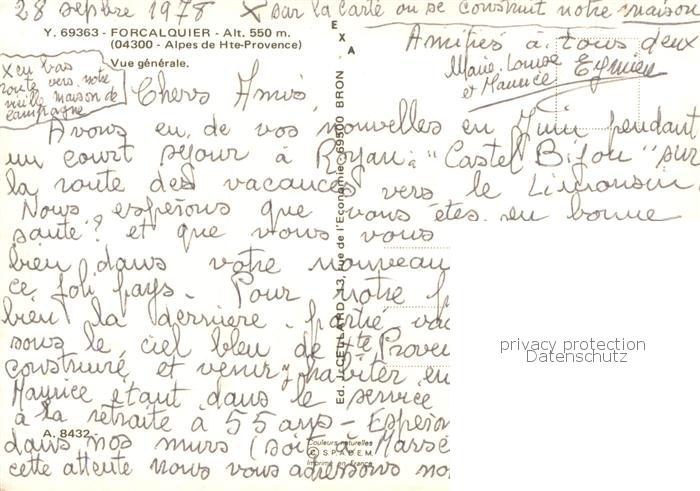 28 septbre 1978 X sur la carte où se construit notre maison
Y. 69363 - FORCALQUIER - Alt. 550 m.
(04300 - Alpes de Hte-Provence)
Vue générale.
EXA
Amitiés à tous deux
Marie-Louise
et Maurice Eymieu
X en bas
route vers notre
vieille maison de
campagne
Chers Amis,
Avons eu de vos nouvelles en Juin pendant
un court séjour à Royan à "Castel Bijou" sur
la route des vacances vers le Limousin
Nous espérons que vous êtes en bonne
santé? et que vous vous
bien dans votre nouveau
ce joli pays. Pour notre
bien la dernière partie
sous le ciel bleu de Hte Proven
construire et venir y habiter en
Maurice étant dans le service
à la retraite à 55 ans - Espérons
dans nos murs (soit à Marse
cette attente nous vous adressons no
Ed. J. CELLARD 13, rue de l'Economie 69500 BRON
A. 8432 -
Couleurs naturelles
© S.P.A.D.E.M.
Imprimé en France
privacy protection
Datenschutz